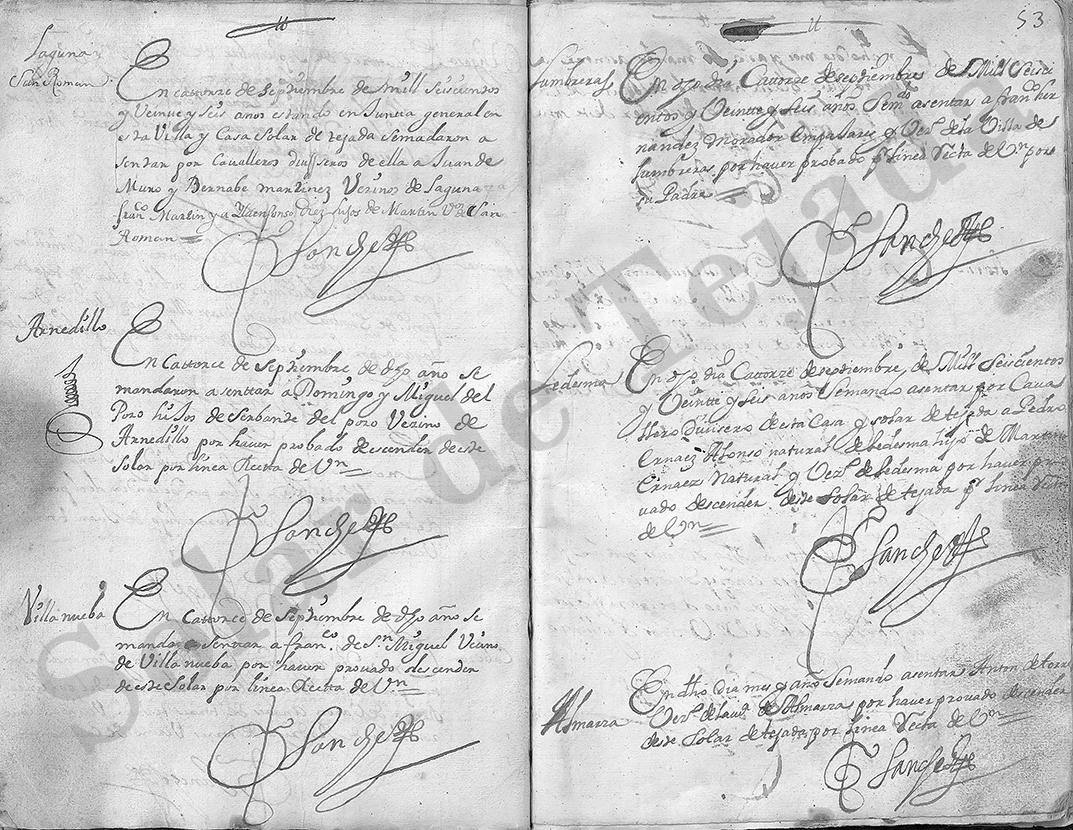 Laguna y
San Roman
En cattorze de septiembre de mill seiscientos
y Veinte y seis años estando en Juntta general en
esta Villa y Casa Solar de tejada semadaron a
sentar por Cavalleros diuisseros de ella a Juan de
Muro y Bernabe martinez Vezinos de Laguna
franco Martin y a Yldefonso diez hijos de Martin Vo de San
Roman
Sanchez
Arnedillo
En Cattorce de Septiembre de dho año se
mandaron a senttar a Domingo y Miguel del
Pozo hijos de del pozo Vezino de
Arnedillo por haver probado descender de este
Solar por linea Recta de Vn
Sanchez
Villanueba
En Cattorce de Septiembre de dho año se
mandaron sentar a franco. de Sn Miguel Vezino
de Villa nueba por haver provado descender
de este Solar por linea Recta de Vn
Sanchez
53
lumbreras
En dho dia Cattorze de septiembre de Mill Seisci
entos y Veintte y seis años Semdo asentar a franco her
nandez Morador en y Vezo. de la Villa de
lumbreras por haver probado pr linea Recta de Vn por
su Padre
Sanchez
Ledesma
En dho dia Cattorze de septiembre, de Mill Seiscientos
y Veintte y seis años Semando asentar por Cava
llero Diuisero de esta Casa y solar de tejada a Pedro
Ernaez Alfonso natural de ledesma hijo de Martin
Ernaez Natural y Vezo. de ledesma por haver pro
vado descender de este Solar de tejada pr linea Recta
de Vn
Sanchez
Almarza
En dho dia mes y año Semando asentar Anton de torre
Vezo. de Almarza por haver provado descender
de este Solar de tejada por linea Recta de Vn
Sanchez
Solar de Tejada